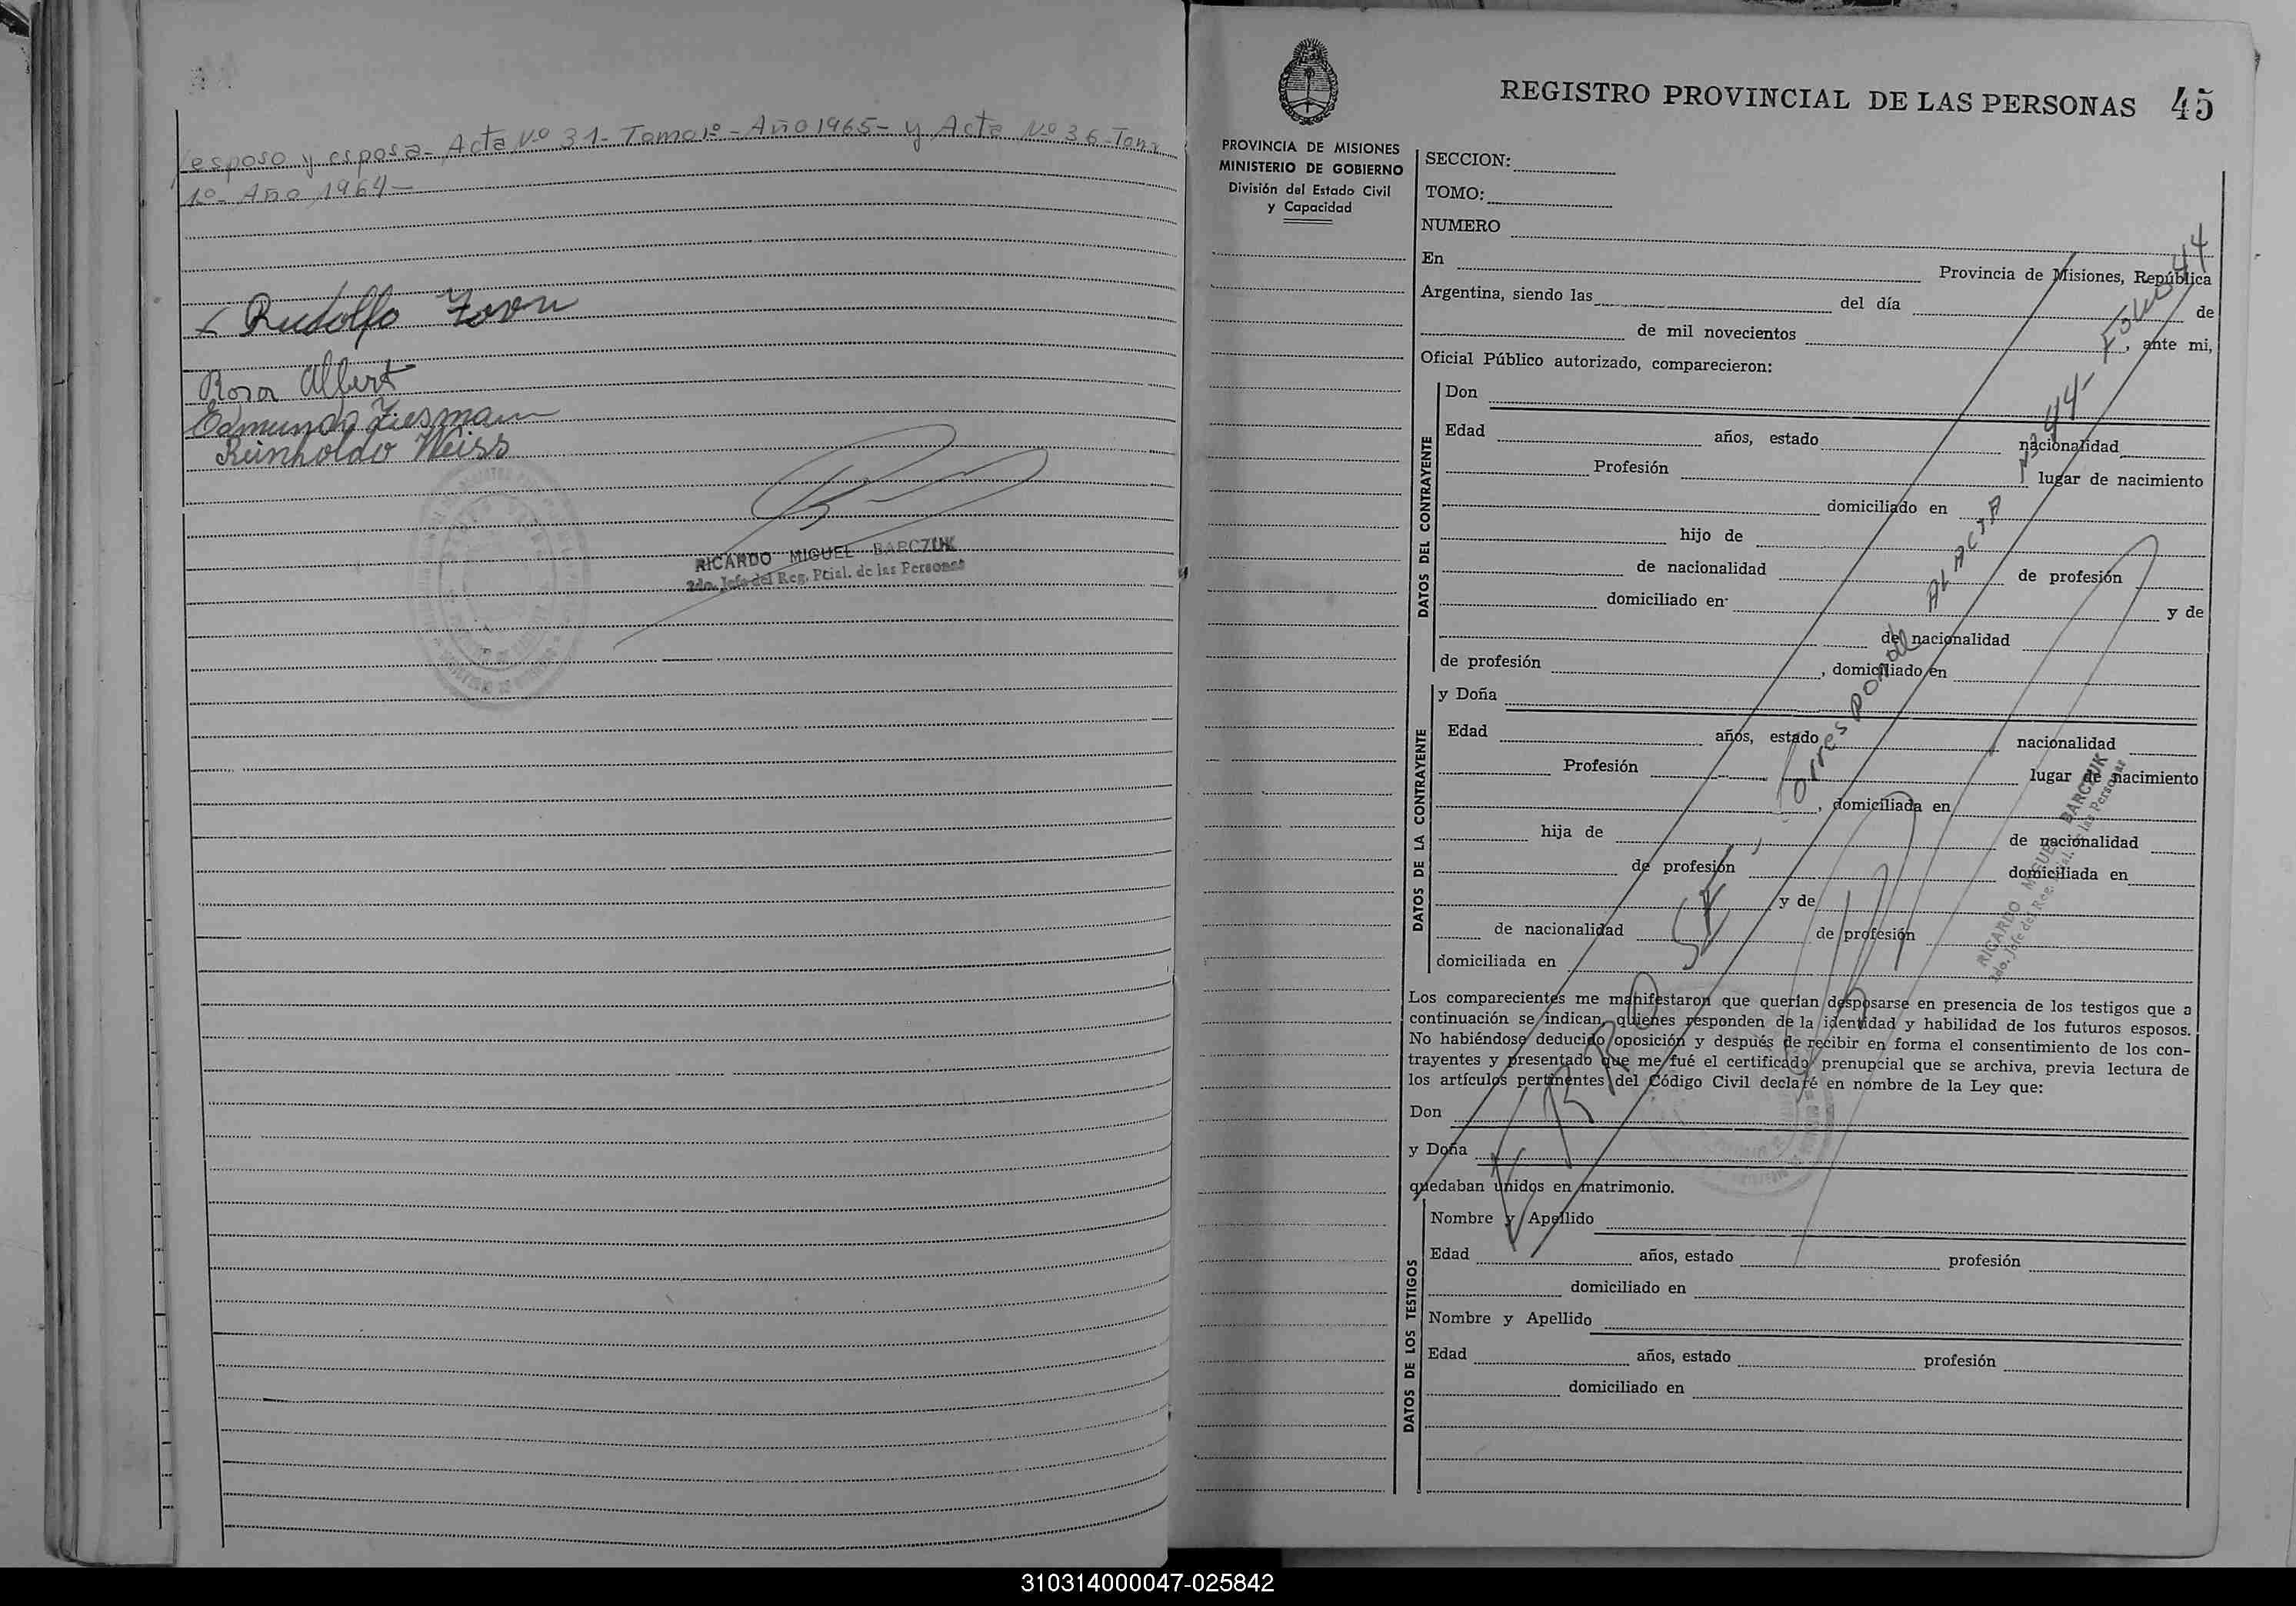 esposo y esposa- Acta Nº 31- Tomo 1º- Año 1965- y Acta Nº 36- Tomo
1º- Año 1964-
Rudolfo
Rosa Albert
Edmundo Ziesmann
Reinholdo Weiss
RICARDO MIGUEL BARCZUK
2do. Jefe del Reg. Pcial. de las Personas
REGISTRO PROVINCIAL DE LAS PERSONAS 45
PROVINCIA DE MISIONES
MINISTERIO DE GOBIERNO
División del Estado Civil
y Capacidad
SECCION:
TOMO:
NUMERO
En Provincia de Misiones, República
Argentina, siendo las del día de
de mil novecientos , ante mi,
Oficial Público autorizado, comparecieron:
DATOS DEL CONTRAYENTE
Don
Edad años, estado nacionalidad
Profesión lugar de nacimiento
domiciliado en
hijo de
de nacionalidad de profesión
domiciliado en y de
de nacionalidad
de profesión , domiciliado en
DATOS DE LA CONTRAYENTE
y Doña
Edad años, estado nacionalidad
Profesión lugar de nacimiento
, domiciliada en
hija de de nacionalidad
de profesión domiciliada en
y de
de nacionalidad de profesión
domiciliada en
Los comparecientes me manifestaron que querían desposarse en presencia de los testigos que a
continuación se indican, quienes responden de la identidad y habilidad de los futuros esposos.
No habiéndose deducido oposición y después de recibir en forma el consentimiento de los con-
trayentes y presentado que me fué el certificado prenupcial que se archiva, previa lectura de
los artículos pertinentes del Código Civil declaré en nombre de la Ley que:
Don
y Doña
quedaban unidos en matrimonio.
DATOS DE LOS TESTIGOS
Nombre y Apellido
Edad años, estado profesión
domiciliado en
Nombre y Apellido
Edad años, estado profesión
domiciliado en
Corresponde AL ACTA Nº 44- FOLIO 44
RICARDO MIGUEL BARCZUK
2do. Jefe del Reg. Pcial. de las Personas
310314000047-025842